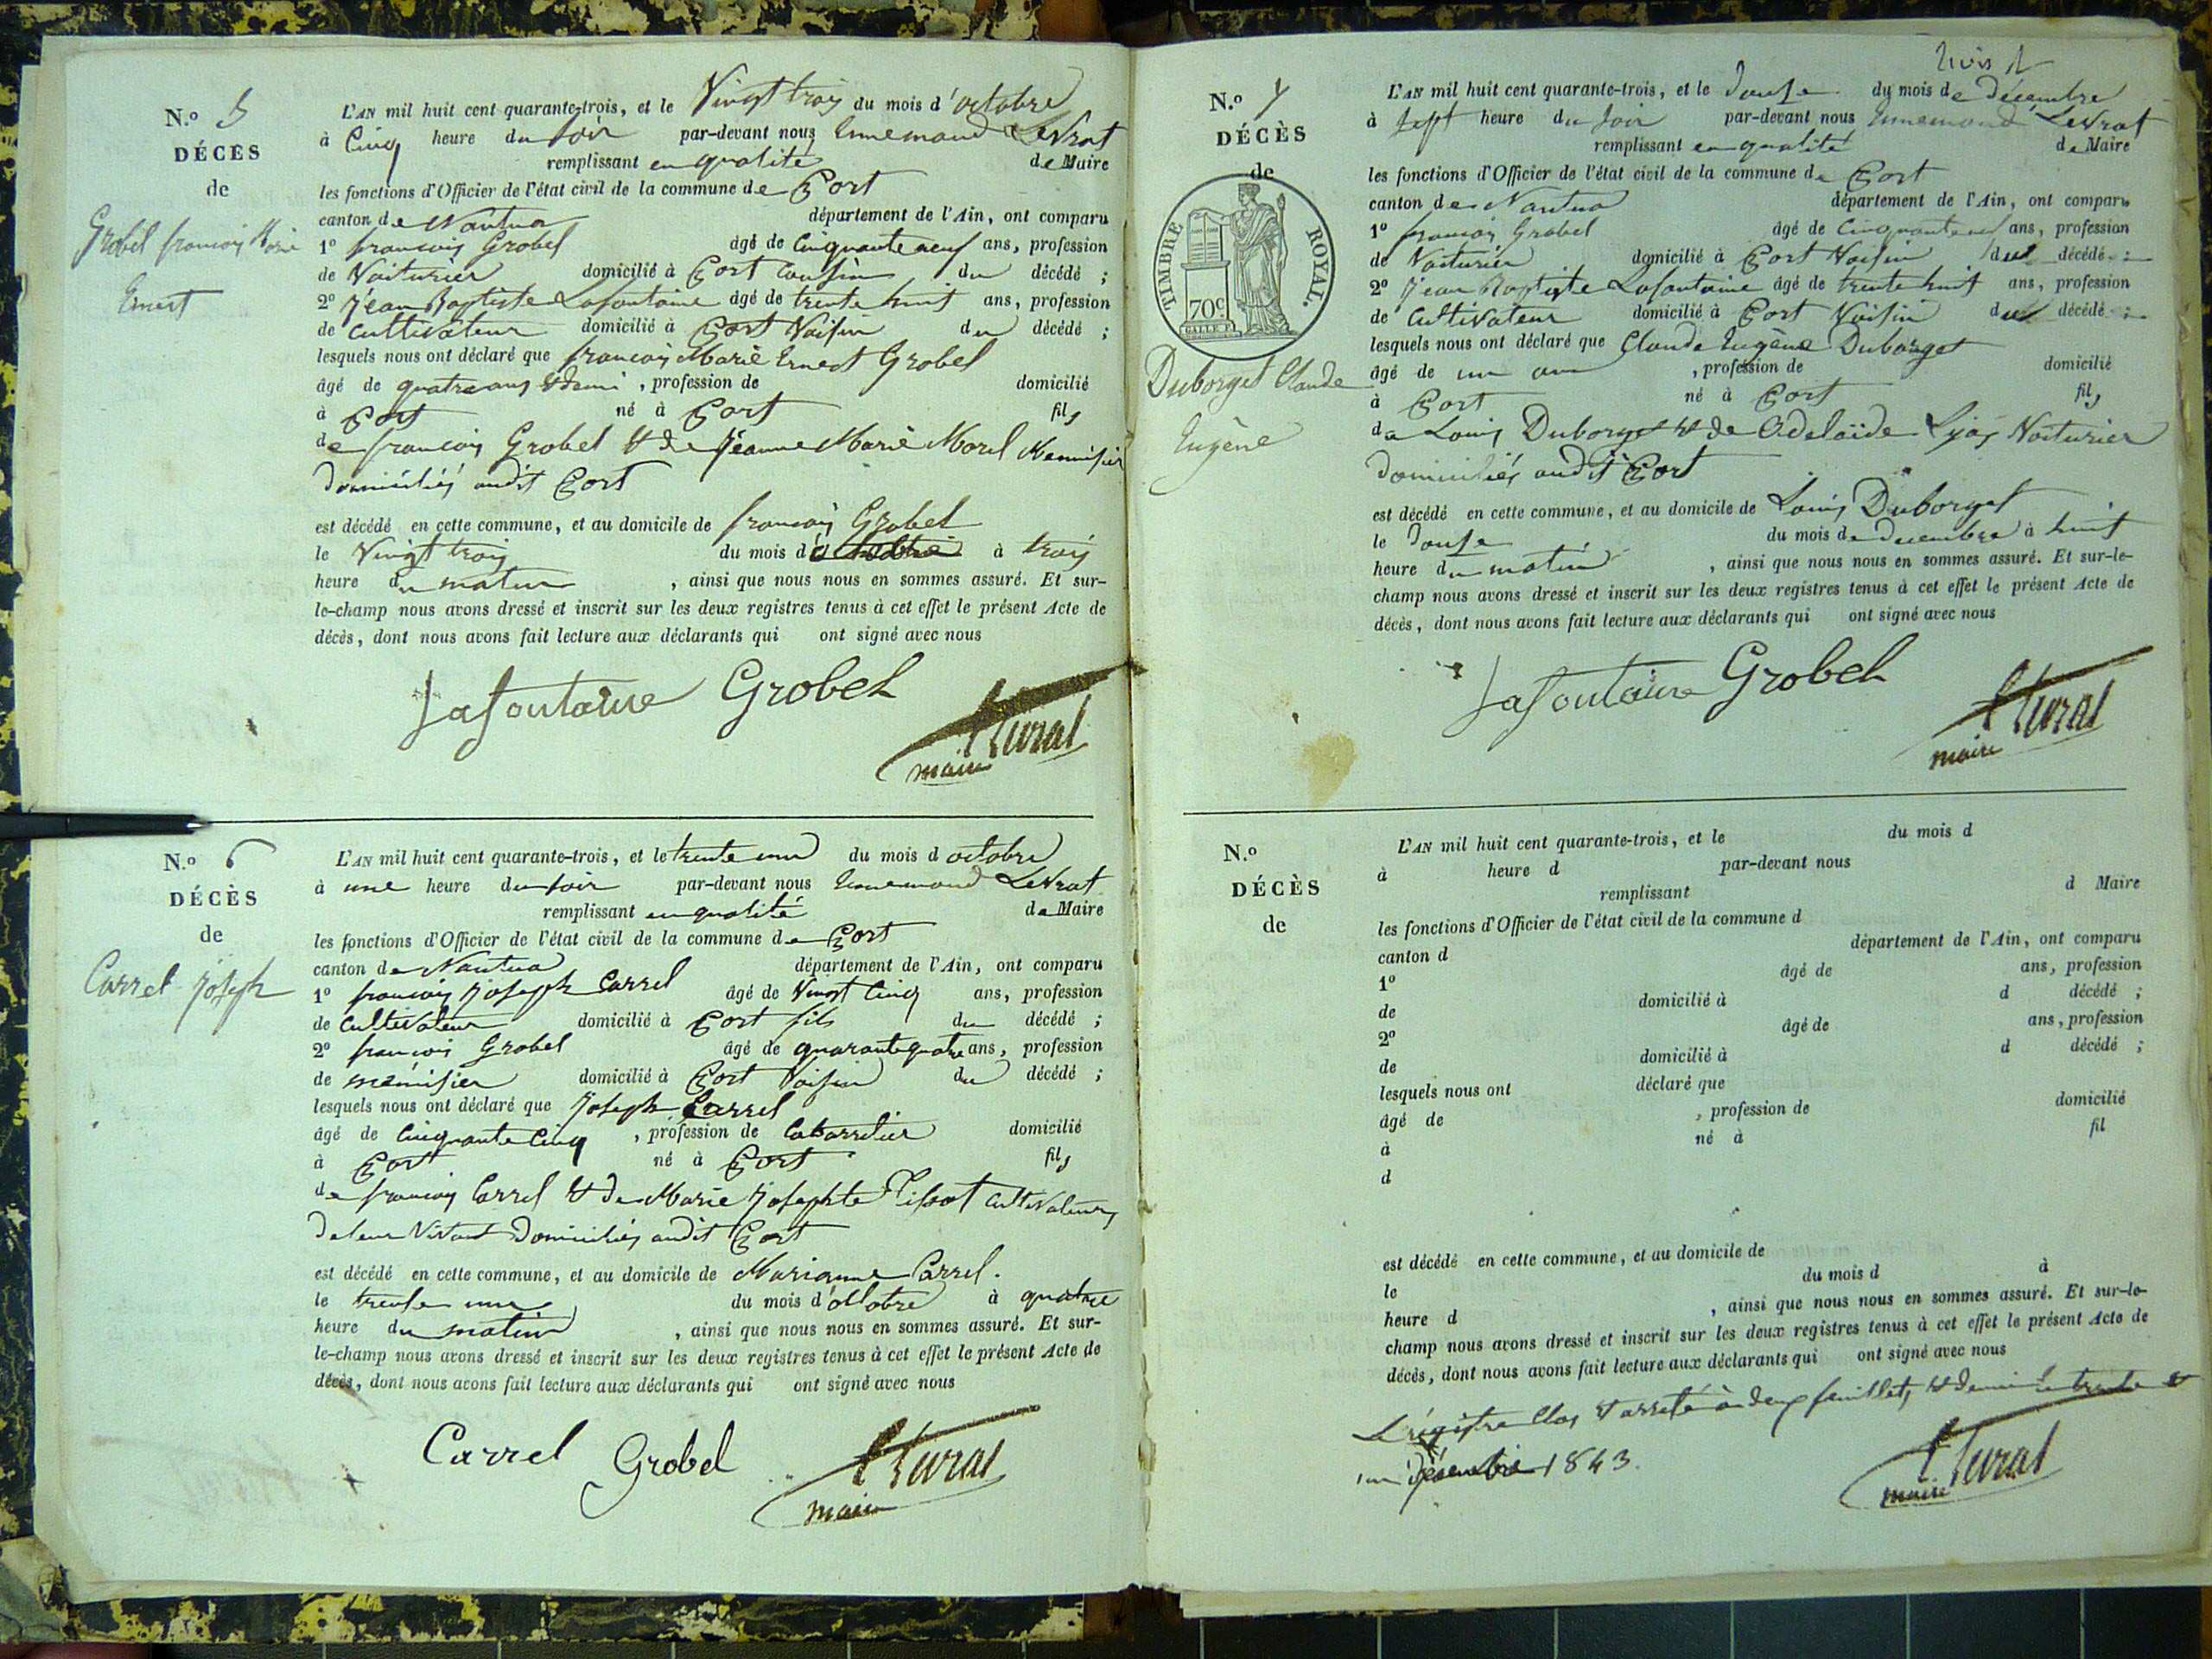 N.o 5
DÉCÈS
de
Grobel françois Marie
Ernest
L'AN mil huit cent quarante-trois, et le Vingt trois du mois d'octobre
à Cinq heure du soir par-devant nous Ennemond Levrat
remplissant en qualité de Maire
les fonctions d'Officier de l'état civil de la commune de Port
canton de Nantua département de l'Ain, ont comparu
1o françois Grobel âgé de Cinquante neuf ans, profession
de Voiturier domicilié à Port Cousin du décédé ;
2o Jean Baptiste Lafontaine âgé de trente huit ans, profession
de Cultivateur domicilié à Port Voisin du décédé ;
lesquels nous ont déclaré que françois Marie Ernest Grobel
âgé de quatre ans & demi , profession de domicilié
à Port né à Port fils
de françois Grobel & de Jeanne Marie Morel Menuisier
domiciliés audit Port
est décédé en cette commune, et au domicile de françois Grobel
le Vingt trois du mois d'octobre à trois
heure du matin , ainsi que nous nous en sommes assuré. Et sur-
le-champ nous avons dressé et inscrit sur les deux registres tenus à cet effet le présent Acte de
décès, dont nous avons fait lecture aux déclarants qui ont signé avec nous
Lafontaine Grobel
maire
N.o 6
DÉCÈS
de
Carrel Joseph
L'AN mil huit cent quarante-trois, et le trente un du mois d octobre
à une heure du soir par-devant nous Ennemond Levrat
remplissant en qualité de Maire
les fonctions d'Officier de l'état civil de la commune de Port
canton de Nantua département de l'Ain, ont comparu
1o françois Joseph Carrel âgé de Vingt Cinq ans, profession
de Cultivateur domicilié à Port fils du décédé ;
2o françois Grobel âgé de quarante quatre ans, profession
de menuisier domicilié à Port Voisin du décédé ;
lesquels nous ont déclaré que Joseph Carrel
âgé de Cinquante Cinq , profession de Cabarretier domicilié
à Port né à Port fils
de françois Carrel & de Marie Josephte Tissot Cultivateurs
de leur Vivant domiciliés audit Port
est décédé en cette commune, et au domicile de Marianne Carrel.
le trente un du mois d'octobre à quatre
heure du matin , ainsi que nous nous en sommes assuré. Et sur-
le-champ nous avons dressé et inscrit sur les deux registres tenus à cet effet le présent Acte de
décès, dont nous avons fait lecture aux déclarants qui ont signé avec nous
Carrel Grobel
maire
N.o 7
DÉCÈS
de
TIMBRE ROYAL.
70c
Duborget Claude
Eugène
L'AN mil huit cent quarante-trois, et le douze du mois de décembre
à Sept heure du soir par-devant nous Ennemond Levrat
remplissant en qualité de Maire
les fonctions d'Officier de l'état civil de la commune de Port
canton de Nantua département de l'Ain, ont comparu
1o françois Grobel âgé de Cinquante neuf ans, profession
de Voiturier domicilié à Port Voisin du décédé ;
2o Jean Baptiste Lafontaine âgé de trente huit ans, profession
de Cultivateur domicilié à Port Voisin du décédé ;
lesquels nous ont déclaré que Claude Eugène Duborget
âgé de un an , profession de domicilié
à Port né à Port fils
de Louis Duborget & de Adelaïde Voiturier
domiciliés audit Port
est décédé en cette commune, et au domicile de Louis Duborget
le douze du mois de decembre à huit
heure du matin , ainsi que nous nous en sommes assuré. Et sur-le-
champ nous avons dressé et inscrit sur les deux registres tenus à cet effet le présent Acte de
décès, dont nous avons fait lecture aux déclarants qui ont signé avec nous
Lafontaine Grobel
maire
N.o
DÉCÈS
de
L'AN mil huit cent quarante-trois, et le du mois d
à heure d par-devant nous
remplissant d Maire
les fonctions d'Officier de l'état civil de la commune d
canton d département de l'Ain, ont comparu
1o âgé de ans, profession
de domicilié à d décédé ;
2o âgé de ans, profession
de domicilié à d décédé ;
lesquels nous ont déclaré que
âgé de , profession de domicilié
à né à fil
d
est décédé en cette commune, et au domicile de
le du mois d à
heure d , ainsi que nous nous en sommes assuré. Et sur-le-
champ nous avons dressé et inscrit sur les deux registres tenus à cet effet le présent Acte de
décès, dont nous avons fait lecture aux déclarants qui ont signé avec nous
Le régistre Clos & arreté à deux feuillets & demi le trente &
un décembre 1843.
maire